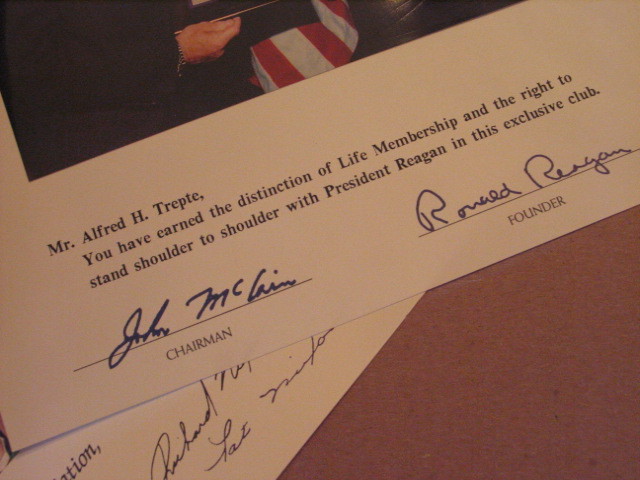 Mr. Alfred H. Trepte,
You have earned the distinction of Life Membership and the right to
stand shoulder to shoulder with President Reagan in this exclusive club.
Ronald Reagan
FOUNDER
John McCain
CHAIRMAN
Richard
Pat Nixon